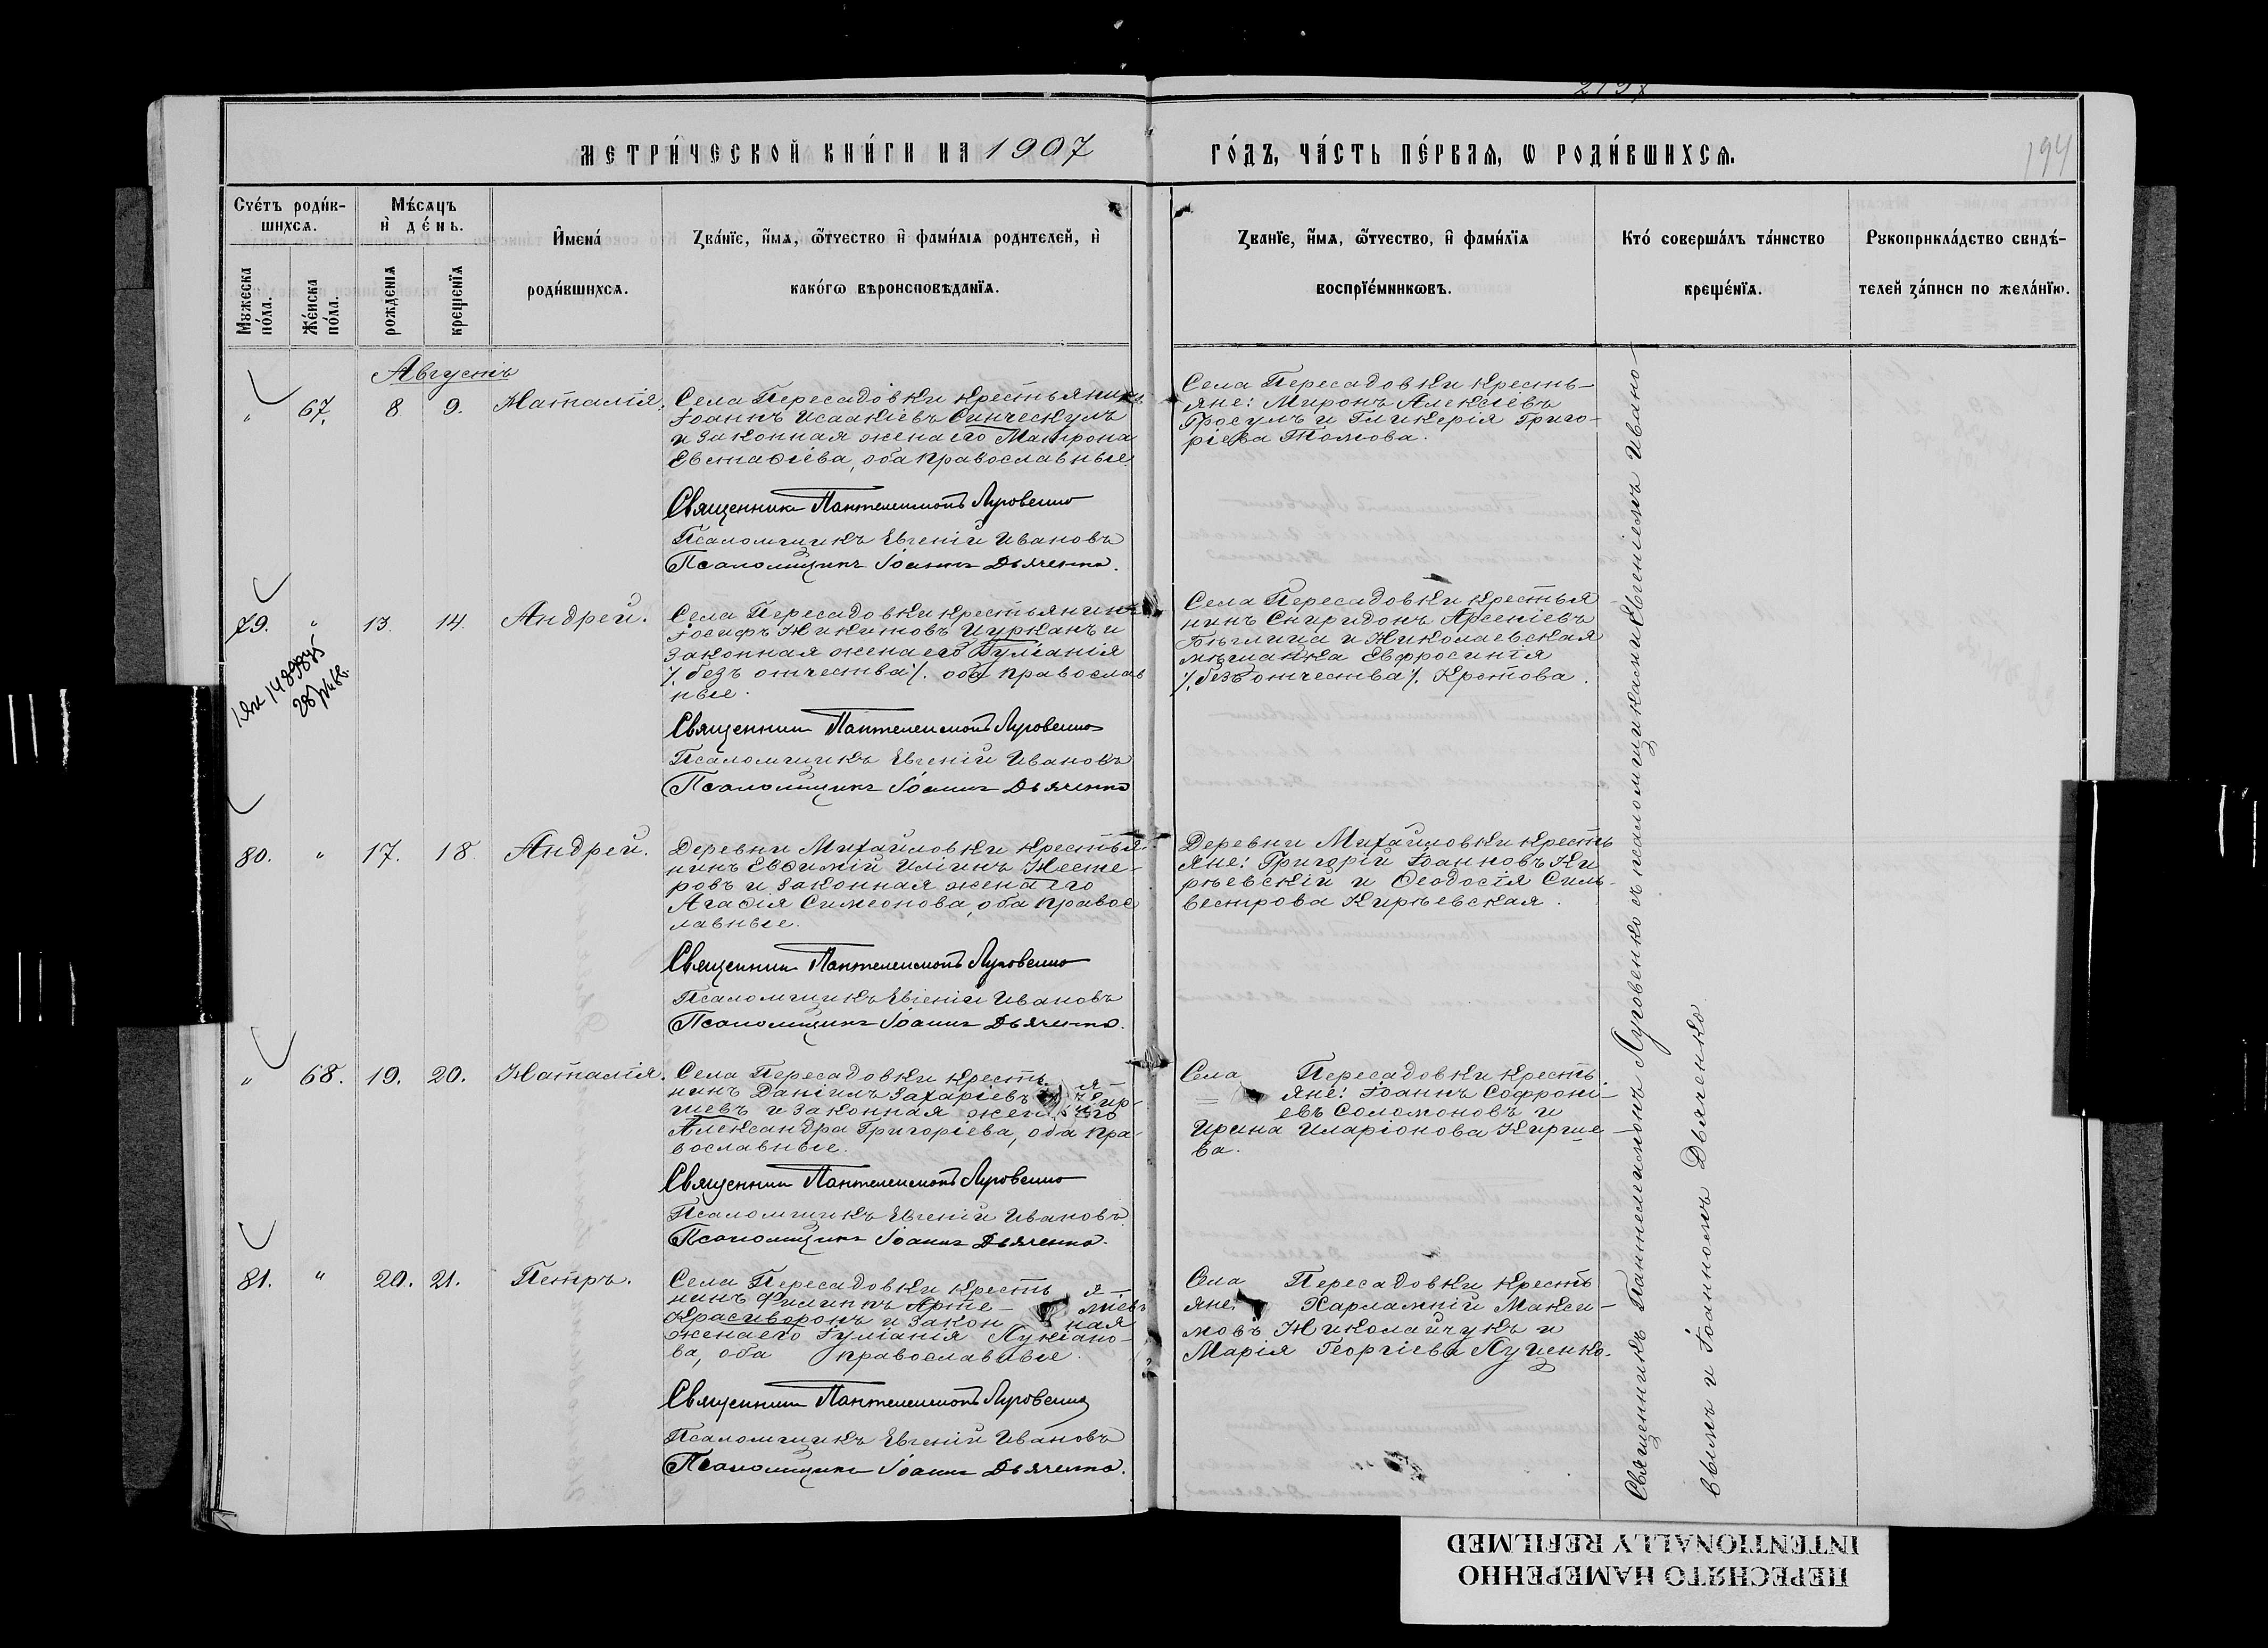 МЕТРИ́ЧЕСКОЙ КНИ́ГИ НА 1907
ГО́ДЪ, ЧА́СТЬ ПЕ́РВАѦ, Ѡ РОДИ́ВШИХСѦ.
194
Счétъ роди́в-
шихсѧ.
Мѣ́сѧцъ
и де́нь.
Мꙋжеска
по́ла.
Же́нска
по́ла.
рожденїѧ
крещенїѧ
Имена́
роди́вшихсѧ.
Зва́нїе, и́мѧ, ѻ́тчество и фами́лїѧ родителей, и
како́гѡ вѣроисповѣданїѧ.
Званїе, и́мѧ, ѻ́тчество, и фами́лїѧ
воспрїе́мникѡвъ.
Кто́ соверша́лъ та́инство
креще́нїѧ.
Рꙋкоприкла́дство свидѣ́-
телей за́писи по жела́нїю.
Августъ
„ 67. 8 9. Наталія.
Села Пересадовки крестьянинъ
Іоаннъ Исаакіевъ Синческулъ
и законная жена его Матрона
Евстаѳіева, оба православные.
Священникъ Пантелеимонъ Луговенко
Псаломщикъ Евгеній Ивановъ
Псаломщикъ Іоаннъ Дьяченко.
Села Пересадовки кресть-
яне: Миронъ Алексіевъ
Гросулъ и Гликерія Григо-
ріева
79. „ 13. 14. Андрей.
Села Пересадовки крестьянинъ
Іосифъ Никитовъ Цурканъ и
законная жена его Іуліанія
% безъ отчества %. оба православ
ные.
Священникъ Пантелеимонъ Луговенко
Псаломщикъ Евгеній Ивановъ
Псаломщикъ Іоаннъ Дьяченко
Села Пересадовки крестья
нинъ Спиридонъ Арсеніевъ
Бѣглица и Николаевская
мѣщанка Евфросинія
% безъ отчества %. Кретова.
80. „ 17. 18. Андрей.
Деревни Михайловки крестья
нинъ Евѳимій Иліинъ Несте-
ровъ и законная жена его
Агаѳія Симеонова, оба правос
лавные.
Священникъ Пантелеимонъ Луговенко
Псаломщикъ Евгеній Ивановъ
Псаломщикъ Іоаннъ Дьяченко.
Деревни Михайловки кресть
яне: Григорій Іоанновъ Ки
рѣевскій и Ѳеодосія Силь-
вестрова Кирѣевская.
„ 68. 19. 20. Наталія.
Села Пересадовки кресть я-
нинъ Даніилъ Захаріевъ Кир-
шевъ и законная жена его
Александра Григоріева, оба пра-
вославные.
Священникъ Пантелеимонъ Луговенко
Псаломщикъ Евгеній Ивановъ
Псаломщикъ Іоаннъ Дьяченко.
Села Пересадовки кресть
яне: Іоаннъ Софроні-
евъ Соломоновъ и
Ирина Иларіонова Кирше
ва.
81. „ 20. 21. Петръ.
Села Пересадовки кресть я-
нинъ Филиппъ Арте- міевъ
Красиворонъ и закон ная
жена его Іуліанія Лукіано-
ва, оба православные.
Священникъ Пантелеимонъ Луговенко
Псаломщикъ Евгеній Ивановъ
Псаломщикъ Іоаннъ Дьяченко.
Села Пересадовки кресть
яне: Харлампій Макси-
мовъ Николайчукъ и
Марія Георгіева Луценко.
Священникъ Пантелеимонъ Луговенко съ псаломщиками Евгеніемъ Ивано-
вымъ и Іоанномъ Дьяченко
ПЕРЕСНЯТО НАМЕРЕННО
INTENTIONALLY REFILMED